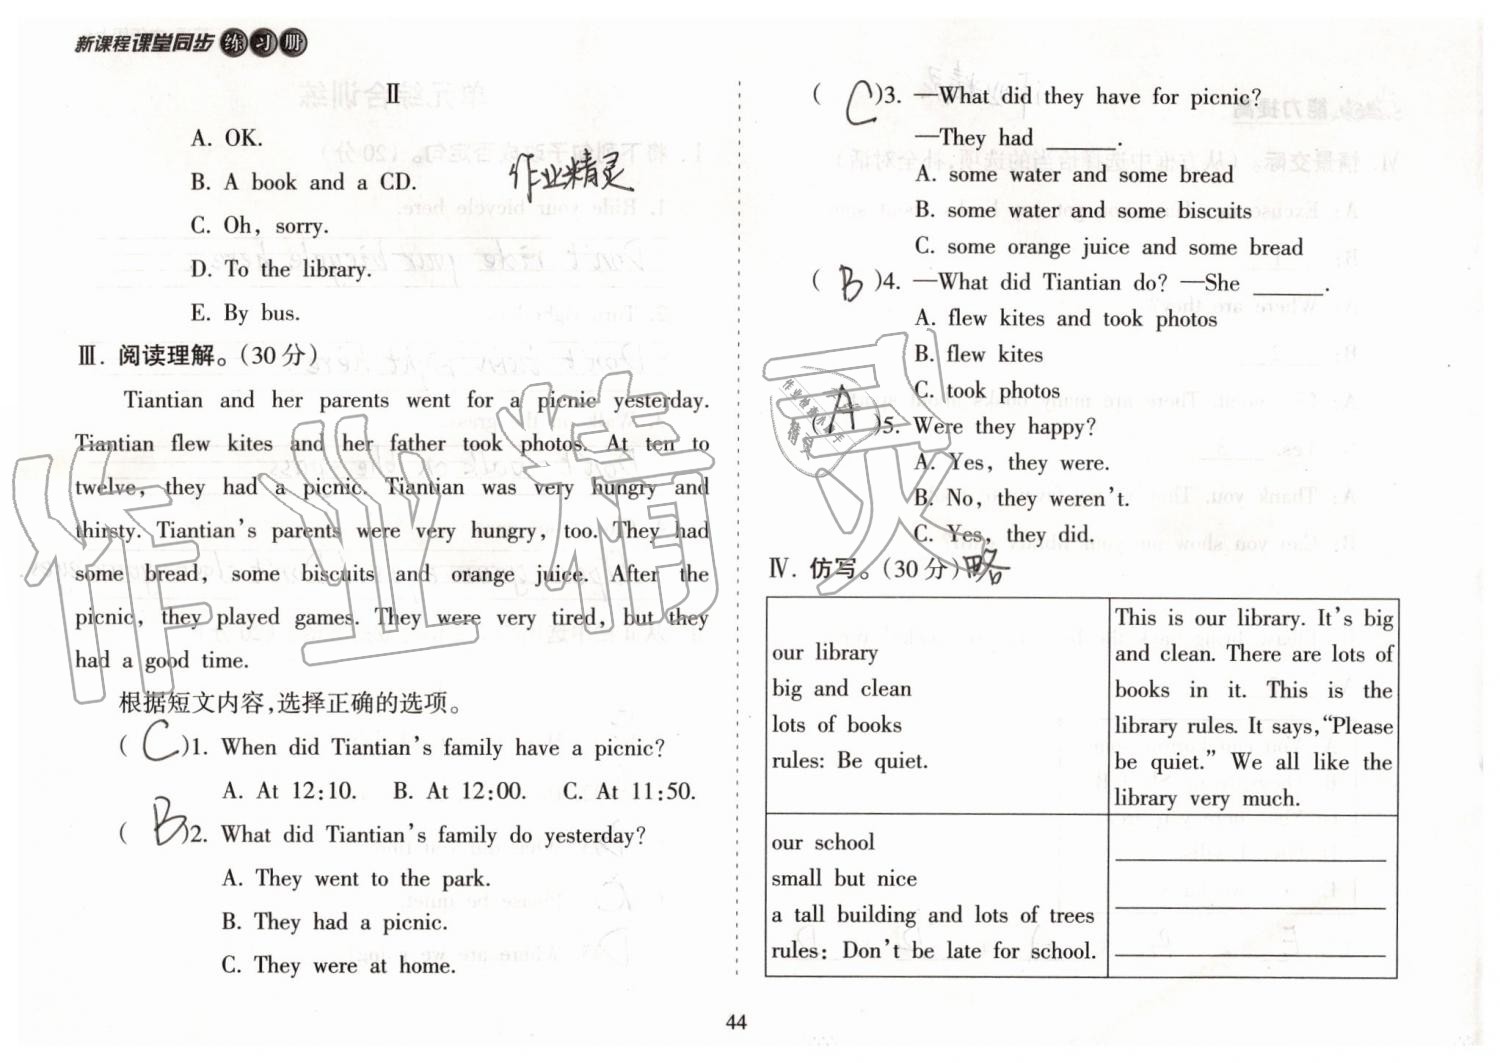 新课程课堂同步练习册
Ⅱ
A. OK.
B. A book and a CD.
作业精灵
C. Oh, sorry.
D. To the library.
E. By bus.
Ⅲ. 阅读理解。(30分)
Tiantian and her parents went for a picnic yesterday.
Tiantian flew kites and her father took photos. At ten to
twelve, they had a picnic. Tiantian was very hungry and
thirsty. Tiantian's parents were very hungry, too. They had
some bread, some biscuits and orange juice. After the
picnic, they played games. They were very tired, but they
had a good time.
根据短文内容,选择正确的选项。
( C )1. When did Tiantian's family have a picnic?
A. At 12:10. B. At 12:00. C. At 11:50.
( B )2. What did Tiantian's family do yesterday?
A. They went to the park.
B. They had a picnic.
C. They were at home.
( C )3. —What did they have for picnic?
—They had ______.
A. some water and some bread
B. some water and some biscuits
C. some orange juice and some bread
( B )4. —What did Tiantian do? —She ______.
A. flew kites and took photos
B. flew kites
C. took photos
( A )5. Were they happy?
A. Yes, they were.
B. No, they weren't.
C. Yes, they did.
Ⅳ. 仿写。(30分) 略
our library
big and clean
lots of books
rules: Be quiet.
This is our library. It's big
and clean. There are lots of
books in it. This is the
library rules. It says, "Please
be quiet." We all like the
library very much.
our school
small but nice
a tall building and lots of trees
rules: Don't be late for school.
44
作业精灵